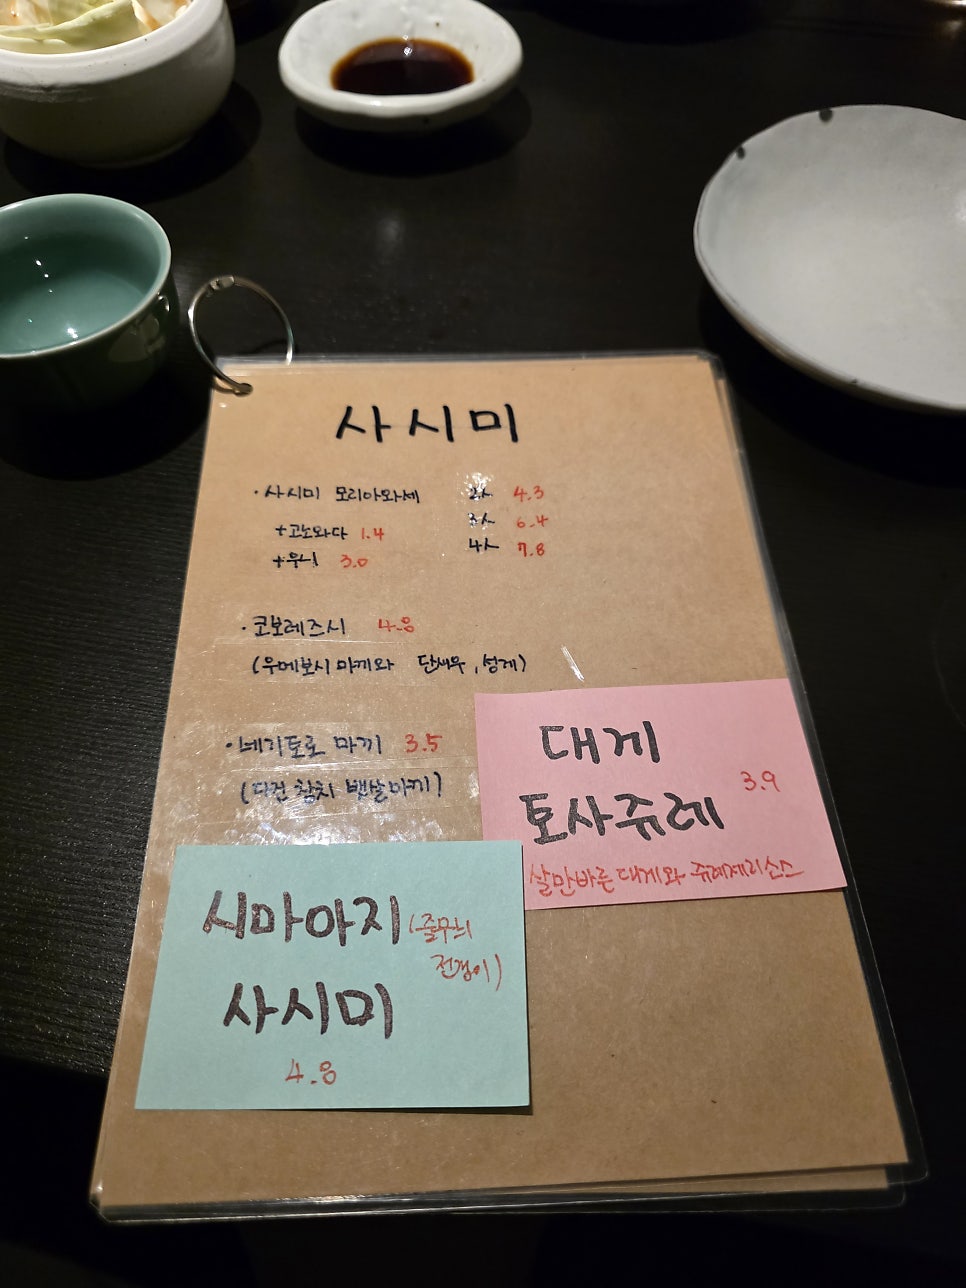 사시미
·사시미 모리아와세 2人 4.3
+고노와다 1.4 3人 6.4
+우니 3.0 4人 7.8
·코보레즈시 4.8
(우메보시 마끼와 단새우, 성게)
·네기토로 마끼 3.5
(다진 참치 뱃살마끼)
대게
토사쥬레 3.9
살만바른 대게와 쥬레제리소스
시마아지 (줄무늬
전갱이)
사시미
4.8